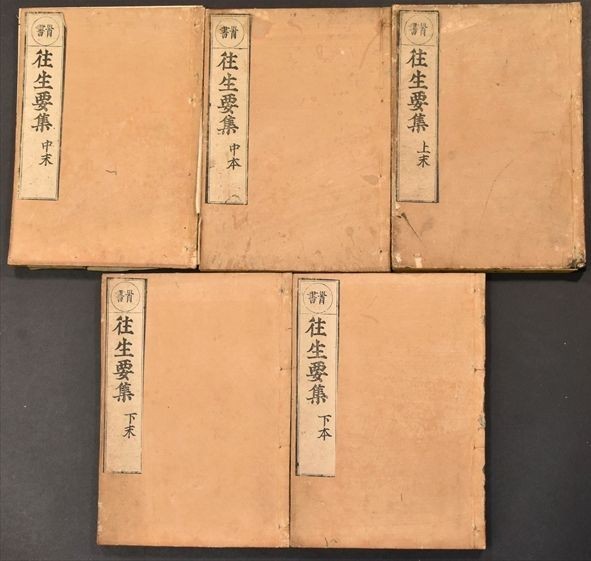 首書
往生要集 上末
首書
往生要集 中本
首書
往生要集 中末
首書
往生要集 下本
首書
往生要集 下末